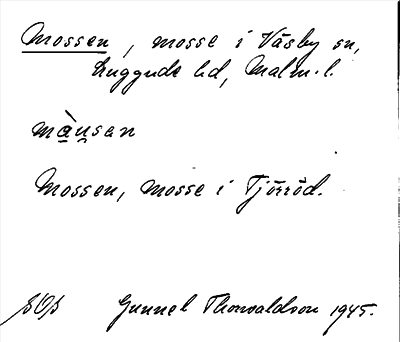 Mossen, mosse i Väsby sn,
Luggude hd, Malm. l.
mằu̯sen
Mossen, mosse i Tjörröd.
Gunnel Thorvaldson 1945.